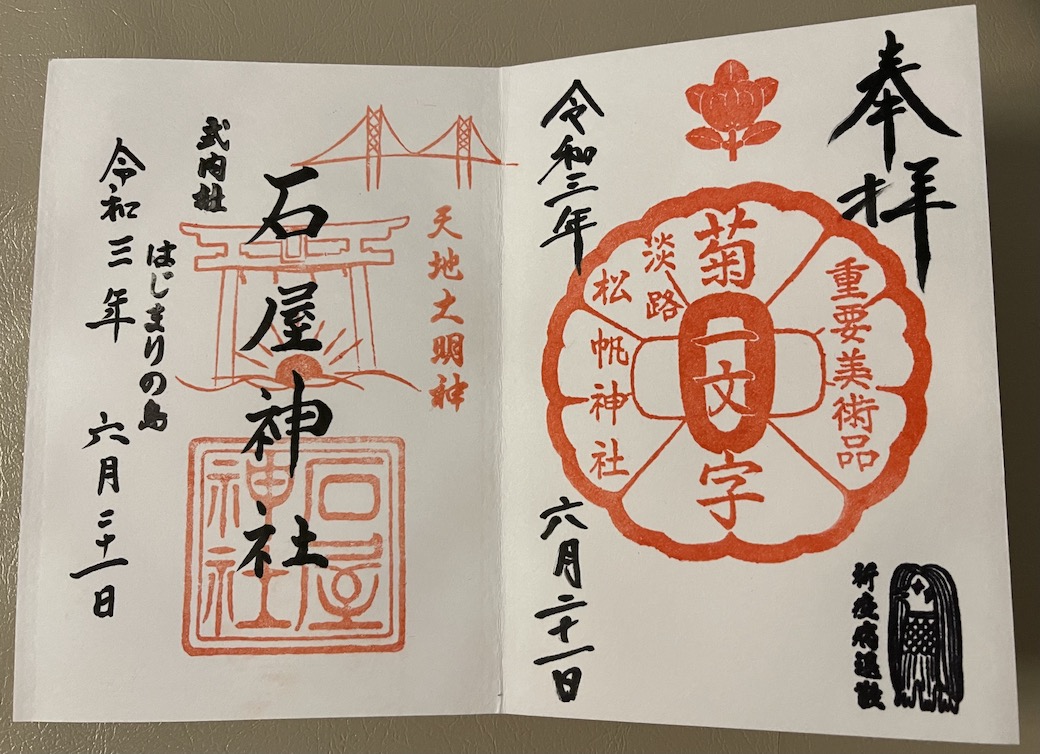 奉拝
祈疫病退散
重要美術品
菊一文字
淡路
松帆神社
令和三年 六月二十一日
天地大明神
石屋神社
石屋
神社
式内社
はじまりの島
令和三年 六月二十一日